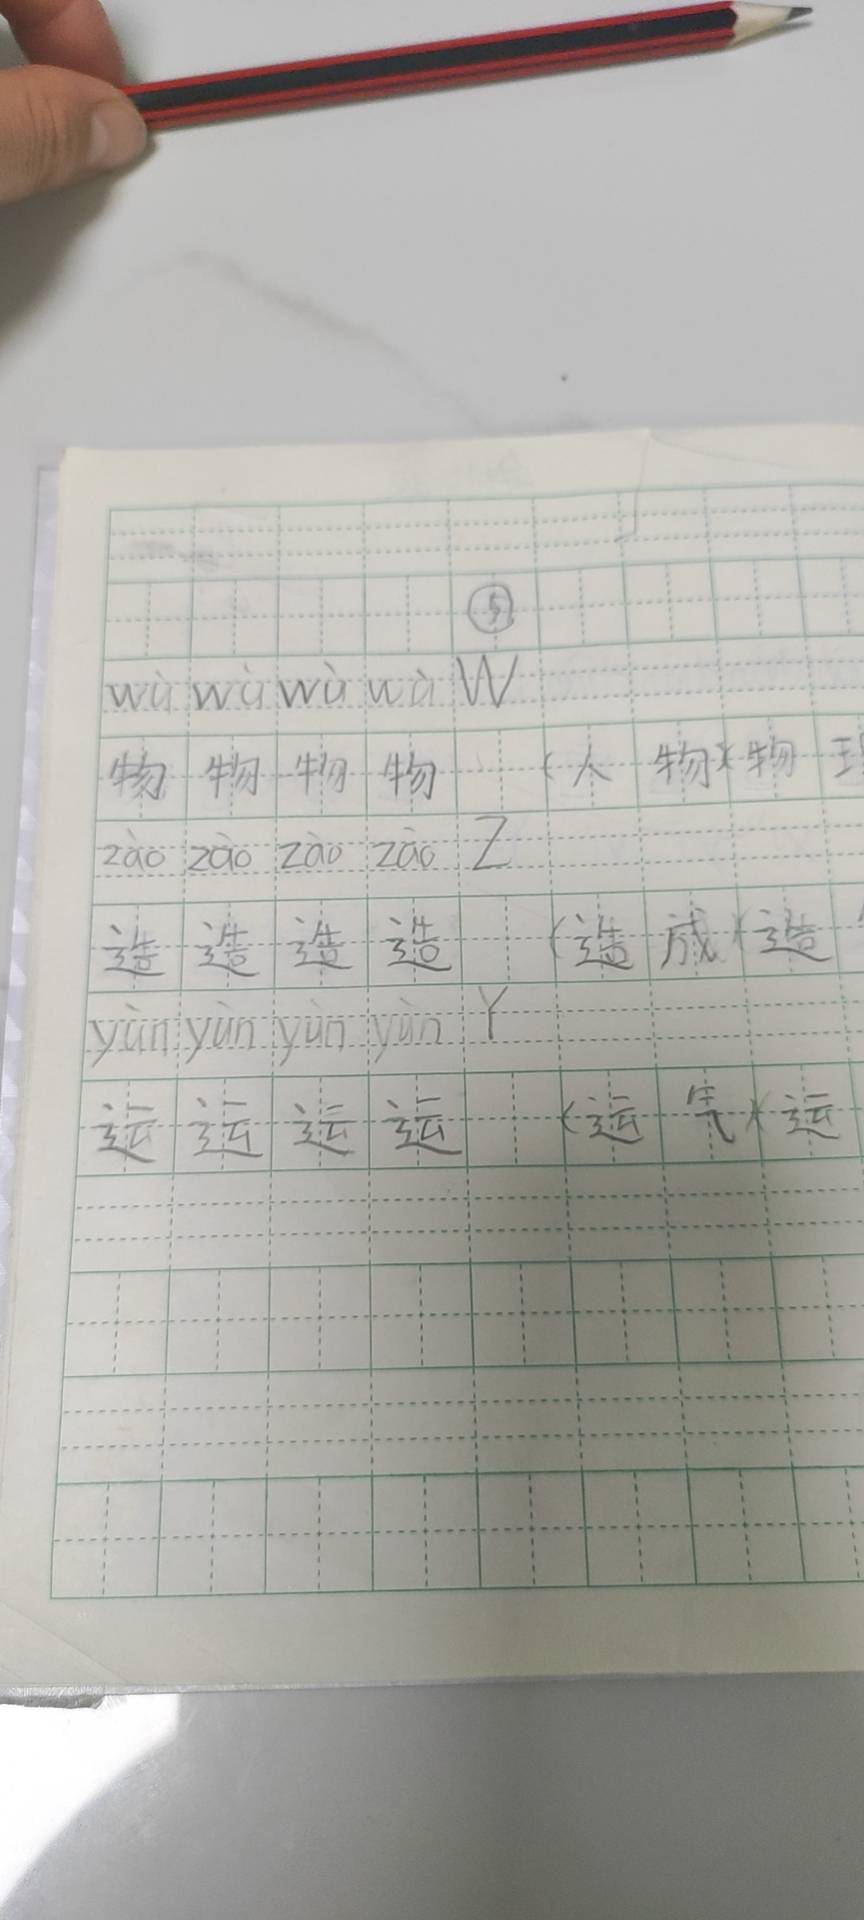 ⑤
wù wù wù wù W
物 物 物 物 (人 物)(物
zào zào zào zào Z
造 造 造 造 (造 成)(造
yùn yùn yùn yùn Y
运 运 运 运 (运 气)(运